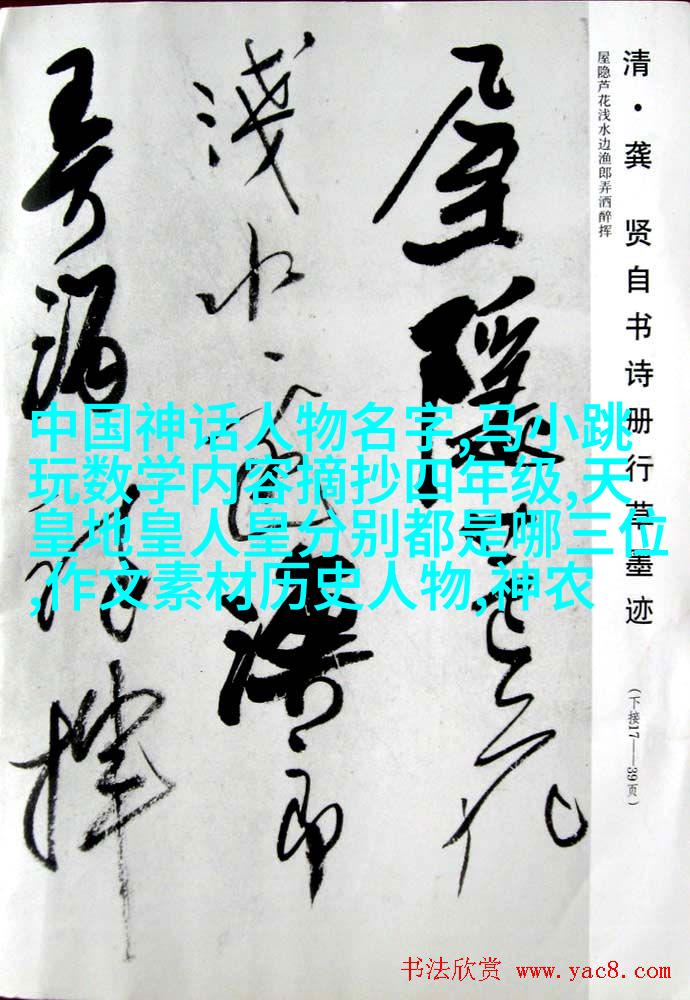 清·龚 贤自书诗册行草墨迹
(下接17——39页)
屋隐芦花浅水边渔郎弄洒醉挥
屋隱芦花
淺水邊漁郎
弄酒醉揮
中国神话人物名字,马小跳
玩数学内容摘抄四年级,天
皇地皇人皇分别都是哪三位
,作文素材历史人物,神农
书法欣赏 www.yac8.com